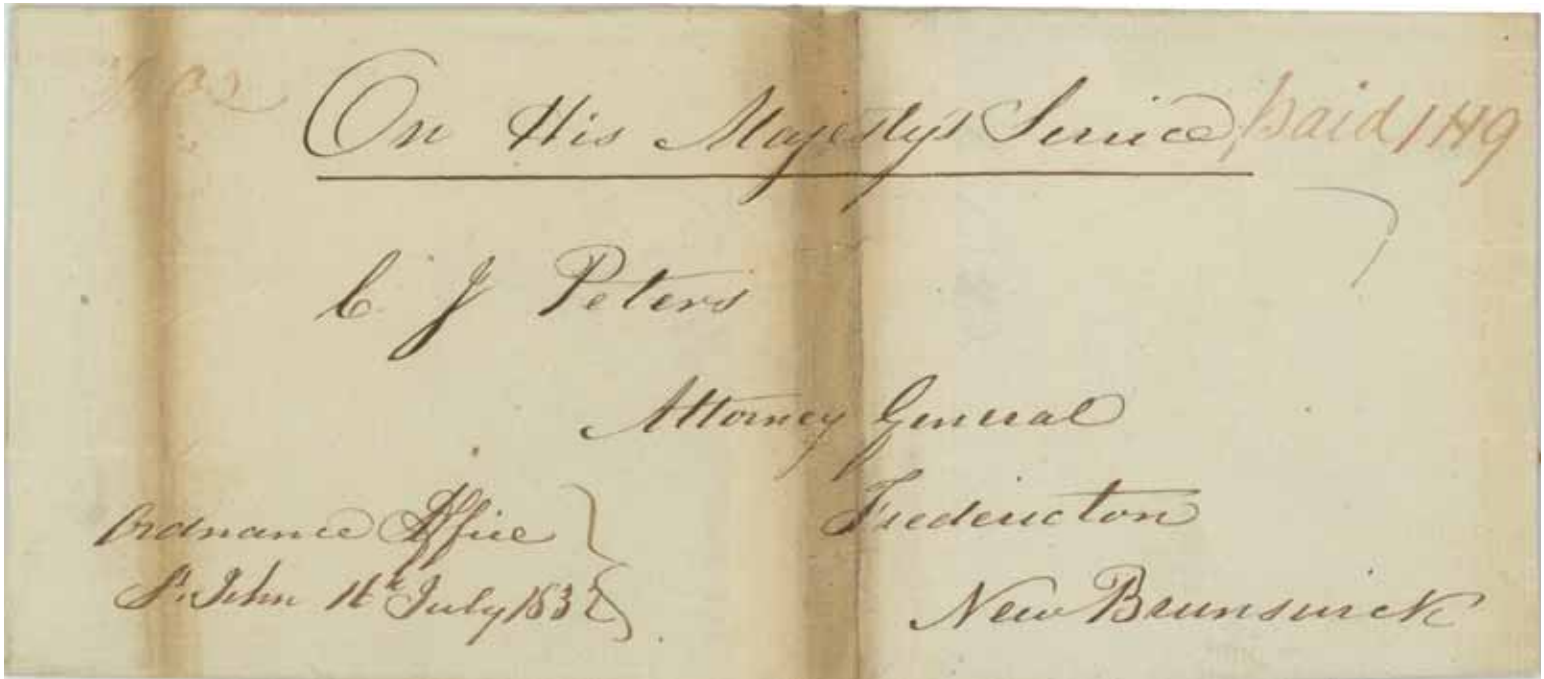 On His Majesty's Service paid 1/19
C. J Peters
Attorney General
Fredericton
New Brunswick
Ordnance Office
St. John 16th July 183